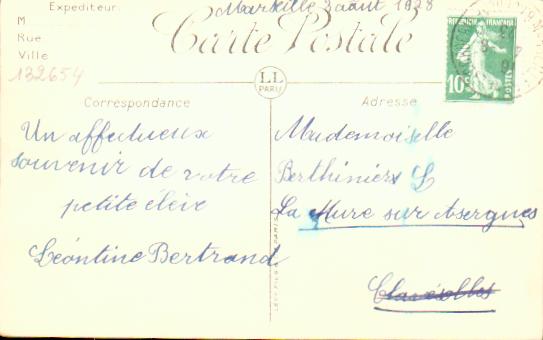 Expéditeur:
Marseille 3 août 1928
M
Rue
Ville
132654
Carte Postale
RÉPUBLIQUE FRANÇAISE
10c
LL
PARIS
Correspondance
Un affectueux
souvenir de votre
petite élève
Léontine Bertrand
Adresse
Mademoiselle
Berthiniers L
La Mure sur Asergues
Clavésolles